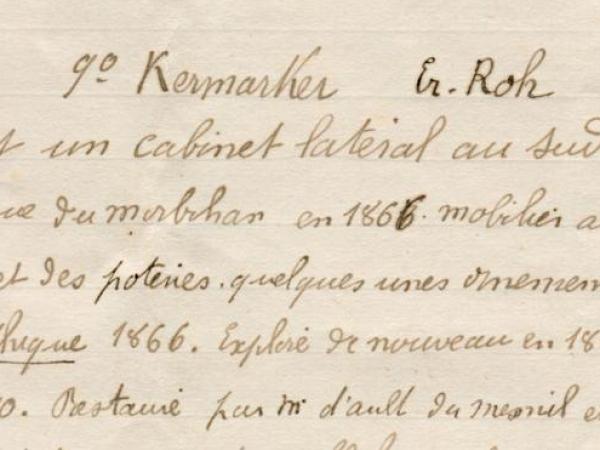 9º Kermarker Er. Roh
t un cabinet latéral au sud
ue du morbihan en 1866. mobilier a
et des poteries. quelques unes ornemen
thique 1866. Exploré de nouveau en 18
0. Restauré par Mr d'ault du mesnil e